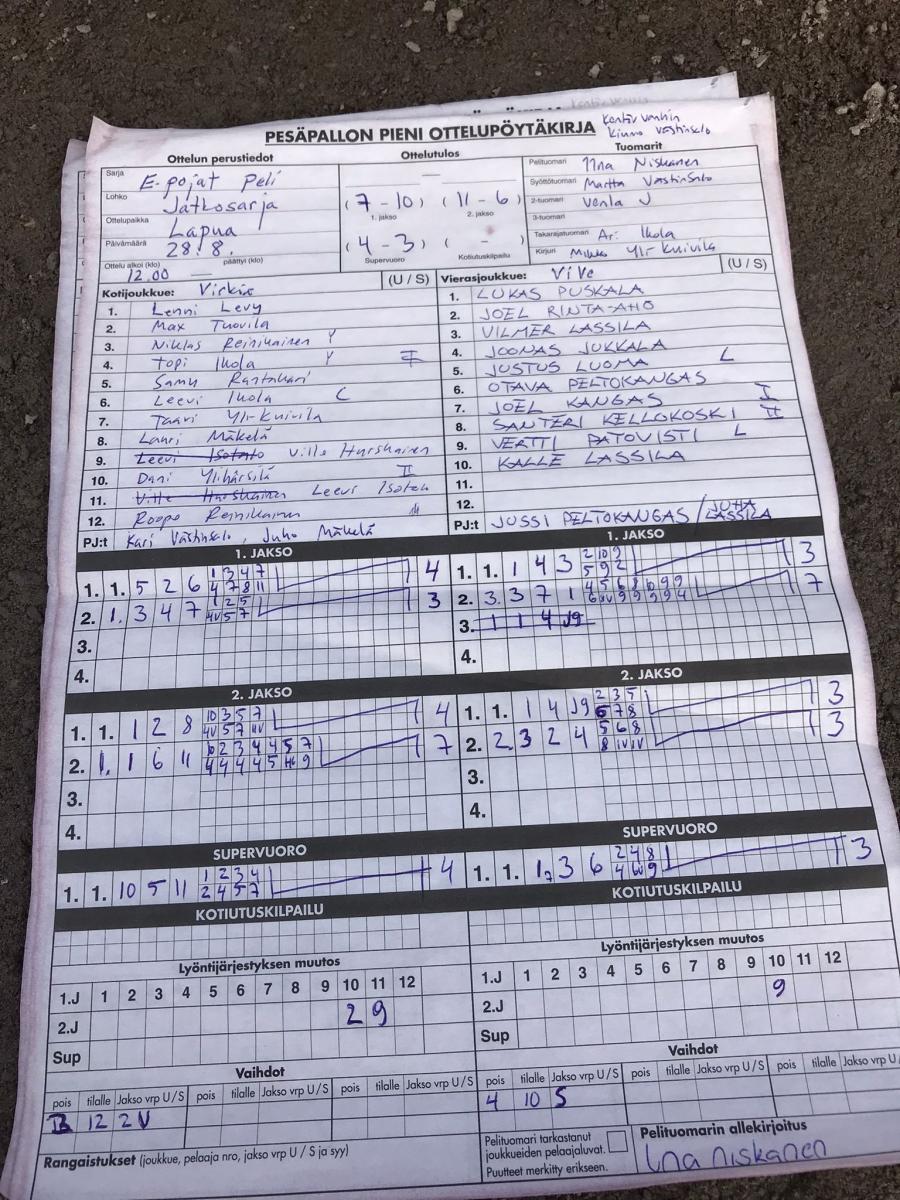 PESÄPALLON PIENI OTTELUPÖYTÄKIRJA
Ottelun perustiedot
Ottelutulos
Tuomarit
Sarja E-pojat Peli
Lohko Jatkosarja
Ottelupaikka Lapua
Päivämäärä 28.8.
Ottelu alkoi (klo) 12.00 — päättyi (klo)
—
(7 - 10) (11 - 6)
1. jakso 2. jakso
(4 - 3) ( - )
Supervuoro Kotiutuskilpailu
Pelituomari Niskanen
Syöttötuomari Martta Västinsalo
2-tuomari Venla J
3-tuomari
Takarajatuomari Ari Ikola
Kirjuri Ylikuivila
Kotijoukkue: Virkiä (U / S)
1. Lenni Levy
2. Max Tuovila
3. Niklas Reinikainen Y
4. Topi Ikola Y I
5. Samu Rantakari
6. Leevi Ikola C
7. Taavi Yli-Kuivila
8. Lauri Mäkelä
9. Ville Hurskainen
10. Dani Ylihärsilä II
11. Leevi
12. Roope Reinikainen
PJ:t Kari Västinselo, Juho Mäkelä
Vierasjoukkue: ViVe (U / S)
1. LUKAS PUSKALA
2. JOEL RINTA-AHO
3. VILMER LASSILA
4. JOONAS JUKKALA
5. JUSTUS LUOMA L
6. OTAVA PELTOKANGAS
7. JOEL KANGAS I
8. SANTERI KELLOKOSKI II
9. VERTTI PATOVISTI L
10. KALLE LASSILA
11.
12.
PJ:t JUSSI PELTOKANGAS / JUHA LASSILA
1. JAKSO
1. 1. 5 2 6 1 3 4 7 4
4 7 8 11
2. 1. 3 4 7 1 2 5 3
4V 5 7
3.
4.
1. JAKSO
1. 1. 1 4 3 2 10 2 3
5 9 2
2. 3. 3 7 1 4 5 6 8 10 9 9 7
3. 1 1 4 J9
4.
2. JAKSO
1. 1. 1 2 8 10 3 5 7 4
4V 5 7
2. 1. 1 6 11 2 3 4 4 5 7 7
4 4 4 4 5 9
3.
4.
2. JAKSO
1. 1. 1 4 J9 2 3 5 3
6 7 8
2. 2. 3 2 4 5 6 8 3
8 IV IV
3.
4.
SUPERVUORO
1. 1. 10 5 11 1 2 3 4 4
2 4 5 7
SUPERVUORO
1. 1. 1, 3 6 2 4 8 3
KOTIUTUSKILPAILU
KOTIUTUSKILPAILU
Lyöntijärjestyksen muutos
1.J 1 2 3 4 5 6 7 8 9 10 11 12
2.J 2 9
Sup
Lyöntijärjestyksen muutos
1.J 1 2 3 4 5 6 7 8 9 10 11 12
2.J 9
Sup
Vaihdot
pois tilalle Jakso vrp U / S pois tilalle Jakso vrp U / S pois tilalle Jakso vrp U / S
12 2 V
Vaihdot
pois tilalle Jakso vrp U / S pois tilalle Jakso vrp U / S pois tilalle Jakso vrp U / S
4 10 S
Rangaistukset (joukkue, pelaaja nro, jakso vrp U / S ja syy)
Pelituomari tarkastanut
joukkueiden pelaajaluvat.
Puutteet merkitty erikseen.
Pelituomarin allekirjoitus
Niskanen